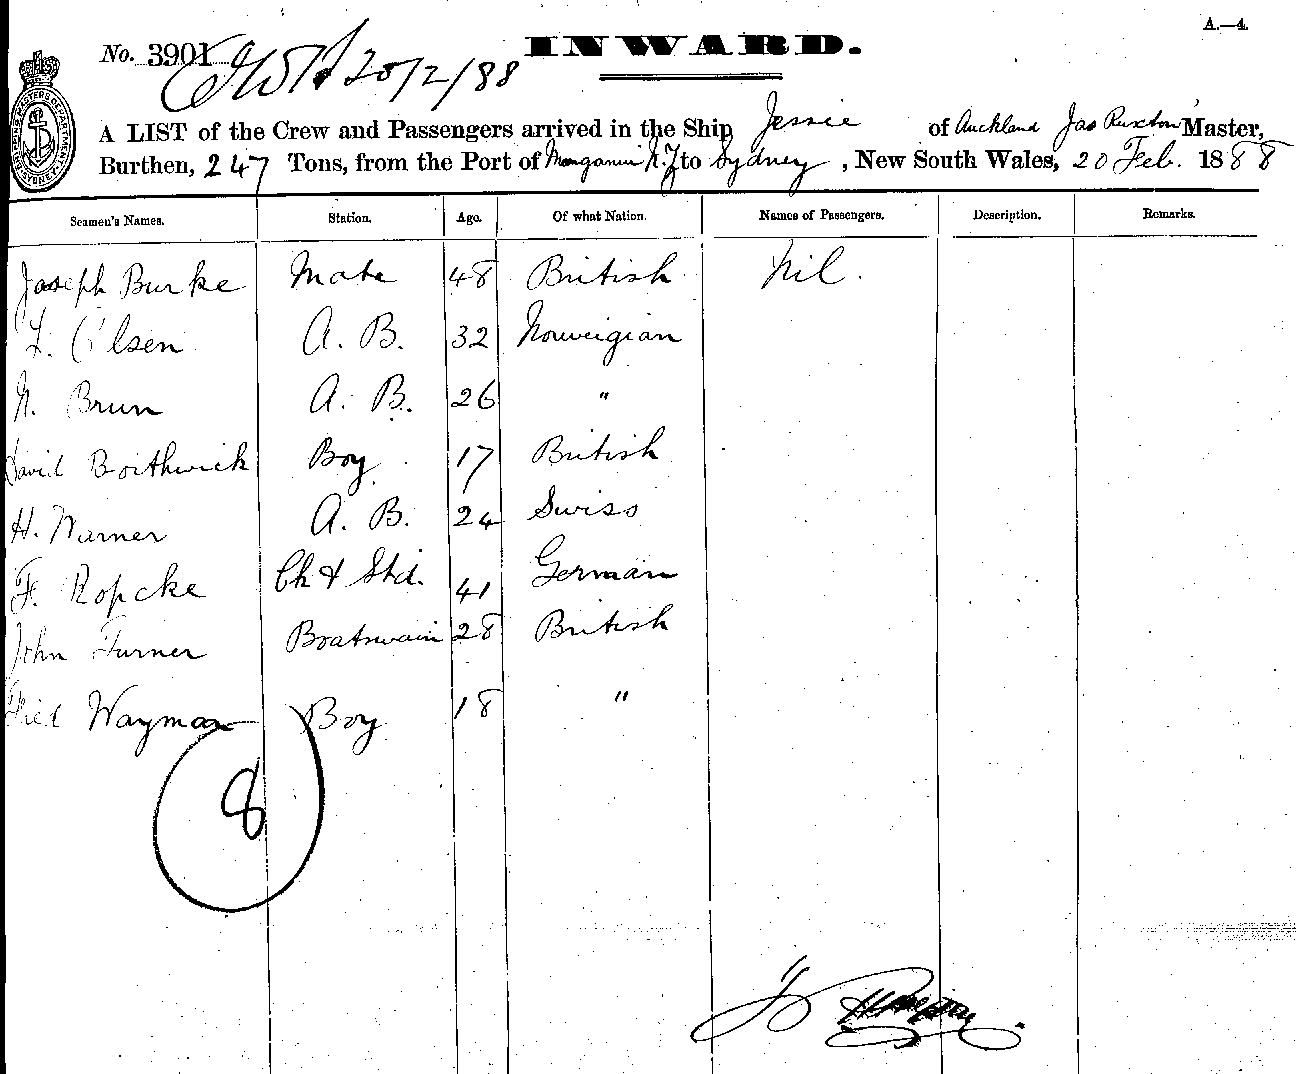 A.—4.
No. 3901 INWARD.
20/2/88
A LIST of the Crew and Passengers arrived in the Ship Jessie of Auckland Jas Ruxton Master,
Burthen, 247 Tons, from the Port of N.Z to Sydney, New South Wales, 20 Feb. 1888
Seamen's Names. Station. Age. Of what Nation. Names of Passengers. Description. Remarks.
Joseph Burke Mate 48 British Nil.
L. Olsen A. B. 32 Norweigian
N. Brun A. B. 26 "
David Borthwick Boy 17 British
H. Warner A. B. 24 Swiss
F. Ropcke Ck & Std. 41 German
John Turner Boatswain 28 British
Fred Wayman Boy 18 "
8